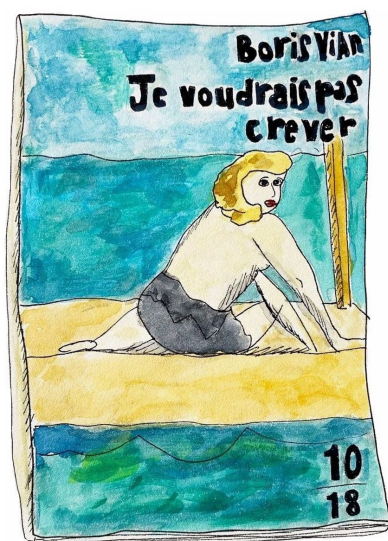 Boris Vian
Je voudrais pas
crever
10
18